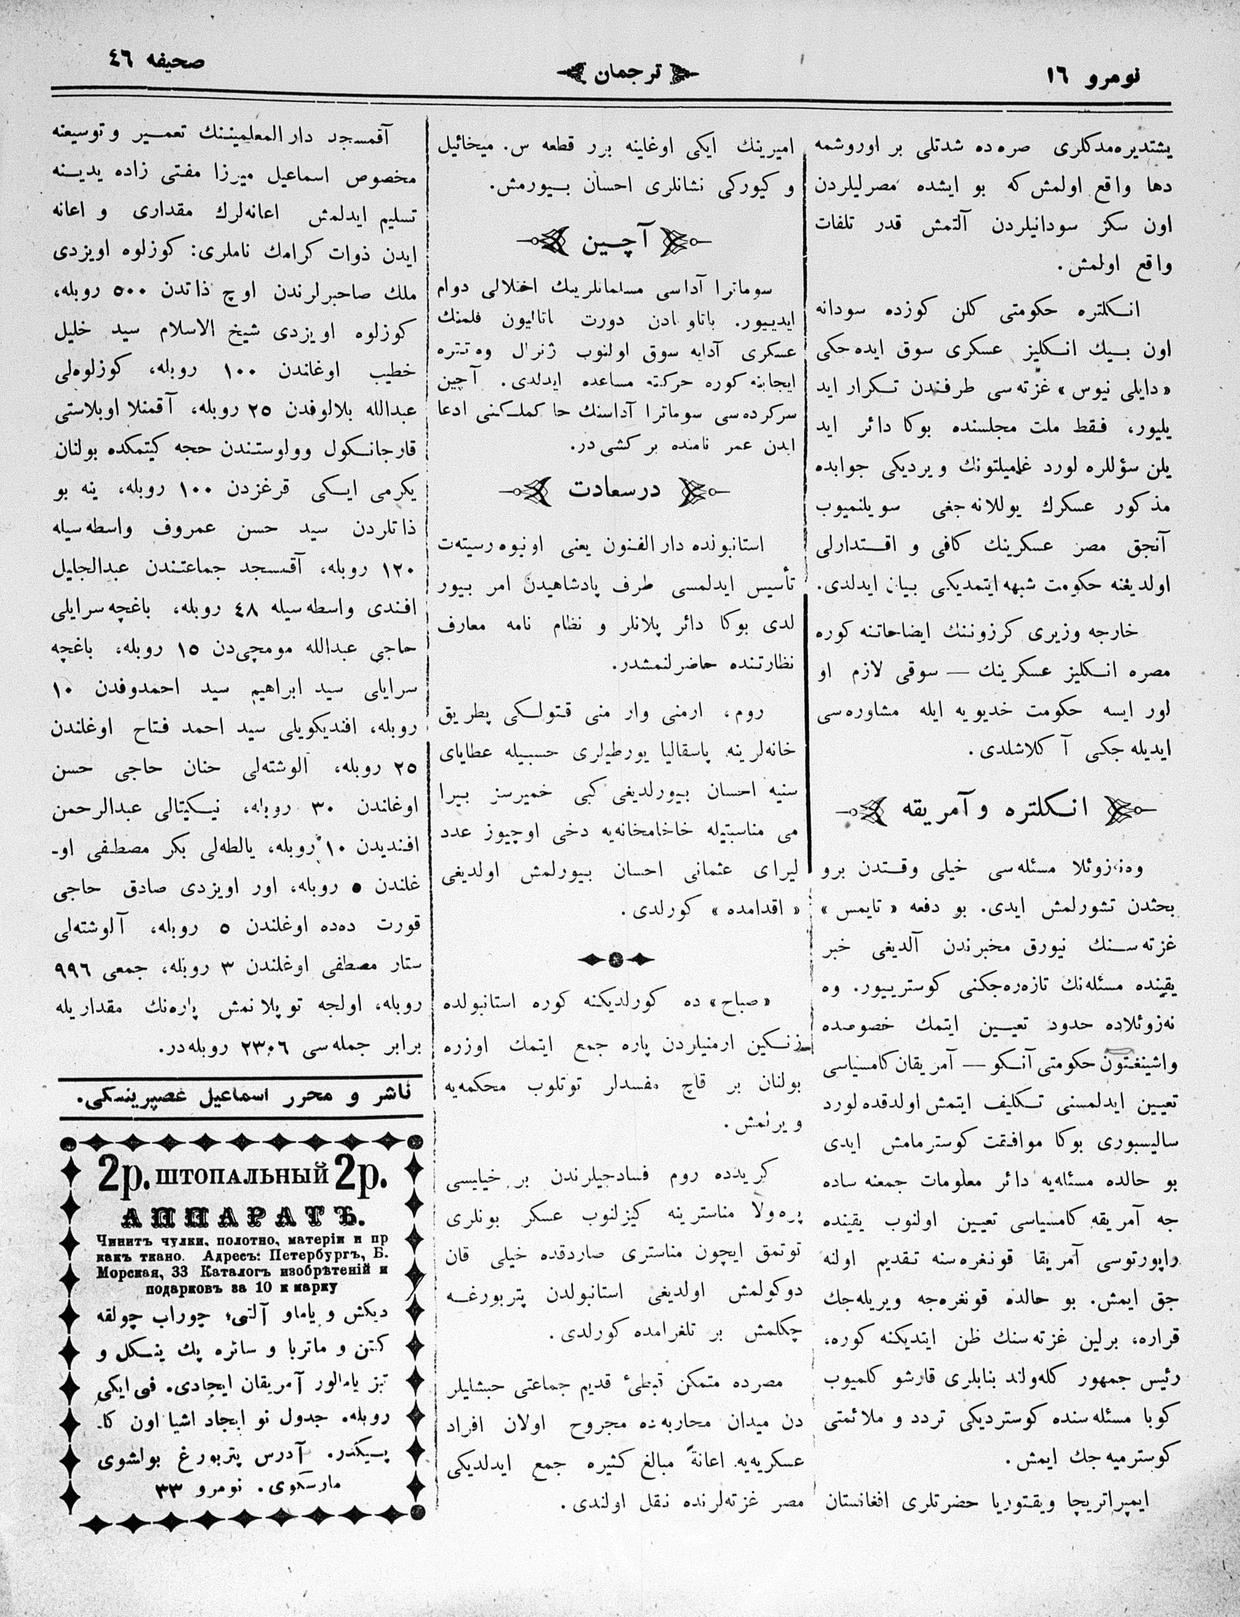 نومرو ١٦
ترجمان
صحيفه ٤٦
يشتديره‌مدكلرى صره‌ده شدتلى بر اوروشمه
دها واقع اولمش كه بو ايشده مصرليلردن
اون سكز سودانيلردن آلتمش قدر تلفات
واقع اولمش.
انكلتره حكومتى كلن كوزده سودانه
اون بيك انكليز عسكرى سوق ايده‌جكى
«دايلى نيوس» غزته‌سى طرفندن تكرار ايد
يليور، فقط ملت مجلسنده بوكا دائر ايد
يلن سؤللره لورد غاميلتونك ويرديكى جوابده
مذكور عسكرك يوللانه‌جغى سويلنميوب
آنجق مصر عسكرينك كافى و اقتدارلى
اولديغنه حكومت شبهه ايتمديكى بيان ايدلدى.
خارجه وزيرى كرزوننك ايضاحاتنه كوره
مصره انكليز عسكرينك — سوقى لازم او
لور ايسه حكومت خديويه ايله مشاوره‌سى
ايديله جكى آكلاشلدى.
انكلتره و آمريقه
وه‌نه‌زوئلا مسئله‌سى خيلى وقتدن برو
بحثدن تشورلمش ايدى. بو دفعه «تايمس»
غزته‌سنك نيورق مخبرندن آلديغى خبر
يقينده مسئله‌نك تازه‌ره‌جكنى كوستريیور. وه
نه‌زوئلاده حدود تعيين ايتمك خصوصده
واشينغتون حكومتى آنكو — آمريقان كامسياسى
تعيين ايدلمسنى تكليف ايتمش اولدقده لورد
ساليسبورى بوكا موافقت كوسترمامش ايدى
بو حالده مسئله‌يه دائر معلومات جمعنه ساده
جه آمريقه كامسياسى تعيين اولنوب يقينده
راپورتوسى آمريقا قونغره‌سنه تقديم اولنه
جق ايمش. بو حالده قونغره‌جه ويريله‌جك
قراره، برلين غزته‌سنك ظن ايتديكنه كوره،
رئيس جمهور كله‌ولند بنابلرى قارشو كلميوب
كوبا مسئله‌سنده كوستردیكى تردد و ملائمتى
كوسترميه‌جك ايمش.
ايمپراتريچا ويقتوريا حضرتلرى افغانستان
اميرينك ايكى اوغلينه برر قطعه س. ميخائيل
و كيوركى نشانلرى احسان بيورمش.
آچين
سوماترا آداسى مسلمانلرينك اختلالى دوام
ايدييور. باتاويادن دورت باتاليون فلمنك
عسكرى آدايه سوق اولنوب ژنرال وه‌تتره
ايجابنه كوره حركته مساعده ايدلدى. آچين
سركرده‌سى سوماترا آداسنك حاكملكنى ادعا
ايدن عمر نامنده بر كشى در.
درسعادت
استانبولده دار الفنون يعنى اونيوه‌رسيته‌ت
تأسيس ايدلمسى طرف پادشاهيدن امر بيور
لدى بوكا دائر پلانلر و نظام نامه معارف
نظارتنده حاضرلنمشدر.
روم، ارمنى وار منى قتولكى پطريق
خانه‌لرينه پاسقاليا يورطيلرى حسبيله عطاياى
سنيه احسان بيورلديغى كبى خميرسز بيرا
مى مناسبتيله خاخامخانه‌يه دخى اوچيوز عدد
ليراى عثمانى احسان بيورلمش اولديغى
«اقدامده» كورلدى.
«صباح» ده كورلديكنه كوره استانبولده
زنكين ارمنيلردن پاره جمع ايتمك اوزره
بولنان بر قاچ مفسدلر توتلوب محكمه‌يه
ويرنمش.
كريدده روم فسادجيلرندن بر خيليسى
پره‌ولا مناسترينه كيزلنوب عسكر بونلرى
توتمق ايچون مناسترى صاردقده خيلى قان
دوكولمش اولديغى استانبولدن پتربورغـه
چكلمش بر تلغرامده كورلدى.
مصرده متمكن قبطئ قديم جماعتى حبشليلر
دن ميدان محاربه‌ده مجروح اولان افراد
عسكريه‌يه اعانةً مبالغ كثيره جمع ايدلديكى
مصر غزته‌لرنده نقل اولندى.
آقمسجد دار المعلميننك تعمير و توسيعنه
مخصوص اسماعيل ميرزا مفتى زاده يدينه
تسليم ايدلمش اعانه‌لرك مقدارى و اعانه
ايدن ذوات كرامك ناملرى: كوزلوه اويزدى
ملك صاحبرلرندن اوچ ذاتدن ٥٠٠ روبله،
كوزلوه اويزدى شيخ الاسلام سيد خليل
خطيب اوغلندن ١٠٠ روبله، كوزلوه‌لى
عبدالله بلالوفدن ٢٥ روبله، آقمنلا اوبلاستى
قارجانكول وولوستندن حجه كيتمكده بولنان
يكرمى ايكى قرغزدن ١٠٠ روبله، ينه بو
ذاتلردن سيد حسن عمروف واسطه‌سيله
١٢٠ روبله، آقمسجد جماعتندن عبدالجليل
افندى واسطه‌سيله ٤٨ روبله، باغچه‌سرايلى
حاجى عبدالله مومجى‌دن ١٥ روبله، باغچه
سرايلى سيد ابراهيم سيد احمدوفدن ١٠
روبله، افنديكويلى سيد احمد فتاح اوغلندن
٢٥ روبله، الوشته‌لى حنان حاجى حسن
اوغلندن ٣٠ روبله، نيكيتالى عبدالرحمن
افنديدن ١٠ روبله، يالطه‌لى بكر مصطفى او-
غلندن ٥ روبله، اور اويزدى صادق حاجى
قورت دەدە اوغلندن ٥ روبله، آلوشته‌لى
ستار مصطفى اوغلندن ٣ روبله، جمعى ٩٩٦
روبله، اولجه توپلانمش پاره‌نك مقداريله
برابر جمله‌سى ٢٣٠٦ روبله‌در.
ناشر و محرر اسماعيل غصپرينسكى.
2р. ШТОПАЛЬНЫЙ 2р.
АППАРАТЪ.
Чинитъ чулки, полотно, матеріи и пр
какъ ткано. Адресъ: Петербургъ, Б.
Морская, 33 Каталогъ изобрѣтеній и
подарковъ за 10 к марку
ديكش و ياماو آلتى؛ چوراب چولقه
كتن و ماتريا و سائره پك ينكل و
تيز يامالور آمريقان ايجادى. فى ايكى
روبله. جدول نو ايجاد اشيا اون كا-
پيكندر. آدرس پتربورغ بولشوى
مارسكوى. نومرو ٣٣